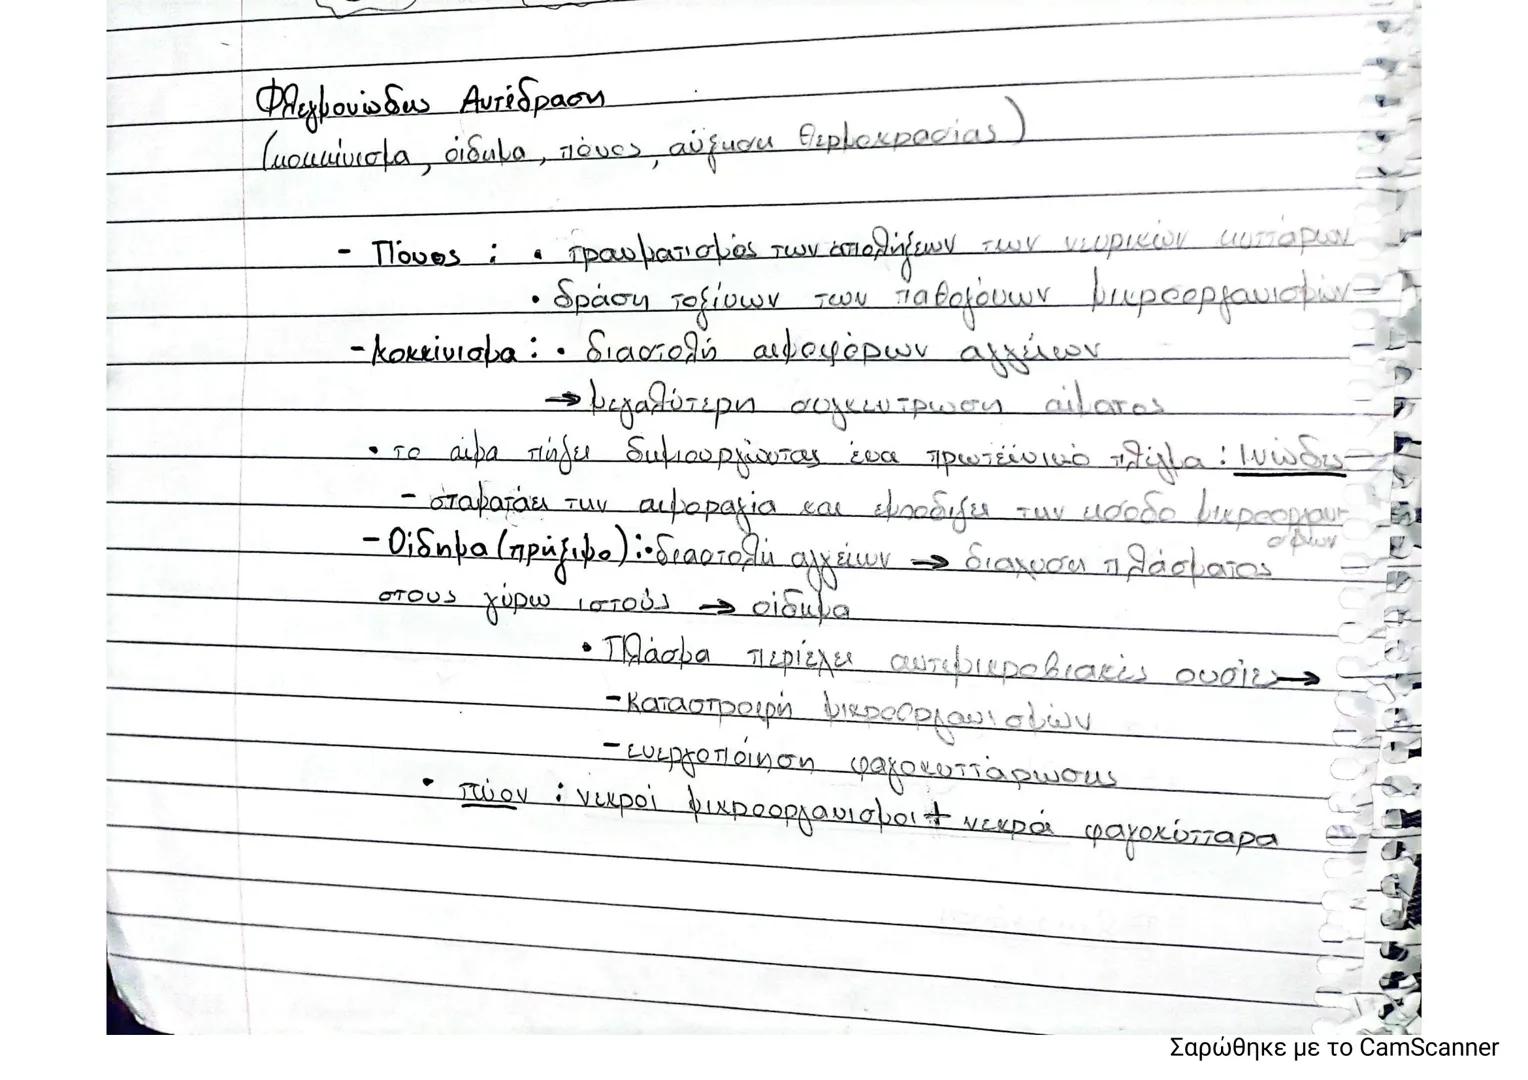 Φλεγμονώδης Αντίδραση
(κοκκίνισμα, οίδημα, πόνος, αύξηση θερμοκρασίας)
- Πόνος : • τραυματισμός των απολήξεων των νευρικών κυττάρων
• δράση τοξίνων των παθογόνων μικροοργανισμών
- Κοκκίνισμα : • διαστολή αιμοφόρων αγγείων
→ μεγαλύτερη συγκέντρωση αίματος
• το αίμα πήζει δημιουργώντας ένα πρωτεϊνικό πλέγμα : Ινώδες
- σταματάει την αιμοραγία και εμποδίζει την είσοδο μικροοργανι
σμών
- Οίδημα (πρήξιμο) : • διαστολή αγγείων → διαχυση πλάσματος
στους γύρω ιστούς → οίδημα
• Πλάσμα περιέχει αντιμικροβιακές ουσίες →
- Καταστροφή μικροοργανισμών
- ενεργοποίηση φαγοκυττάρωσης
• πύον : νεκροί μικροοργανισμοι + νεκρά φαγοκύτταρα
Σαρώθηκε με το CamScanner